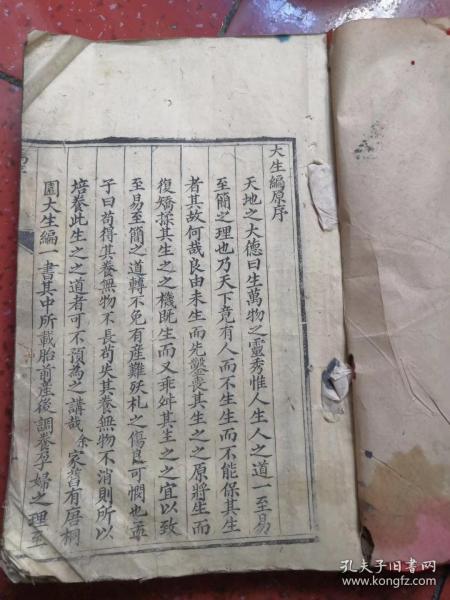 大生編原序
天地之大德曰生萬物之靈秀惟人生人之道一至易
至簡之理也乃天下竟有人而不生生而不能保其生
者其故何哉良由未生而先鑿喪其生之之原將生而
復矯揉其生之之機既生而又乖舛其生之之宜以致
至易至簡之道轉不免有產難殀札之傷良可憫也孟
子曰苟得其養無物不長苟失其養無物不消則所以
培養此生之之道者可不預為之講哉余家舊有唐桐
園大生編一書其中所載胎前產後調養孕婦之理至
孔夫子旧书网
www.kongfz.com